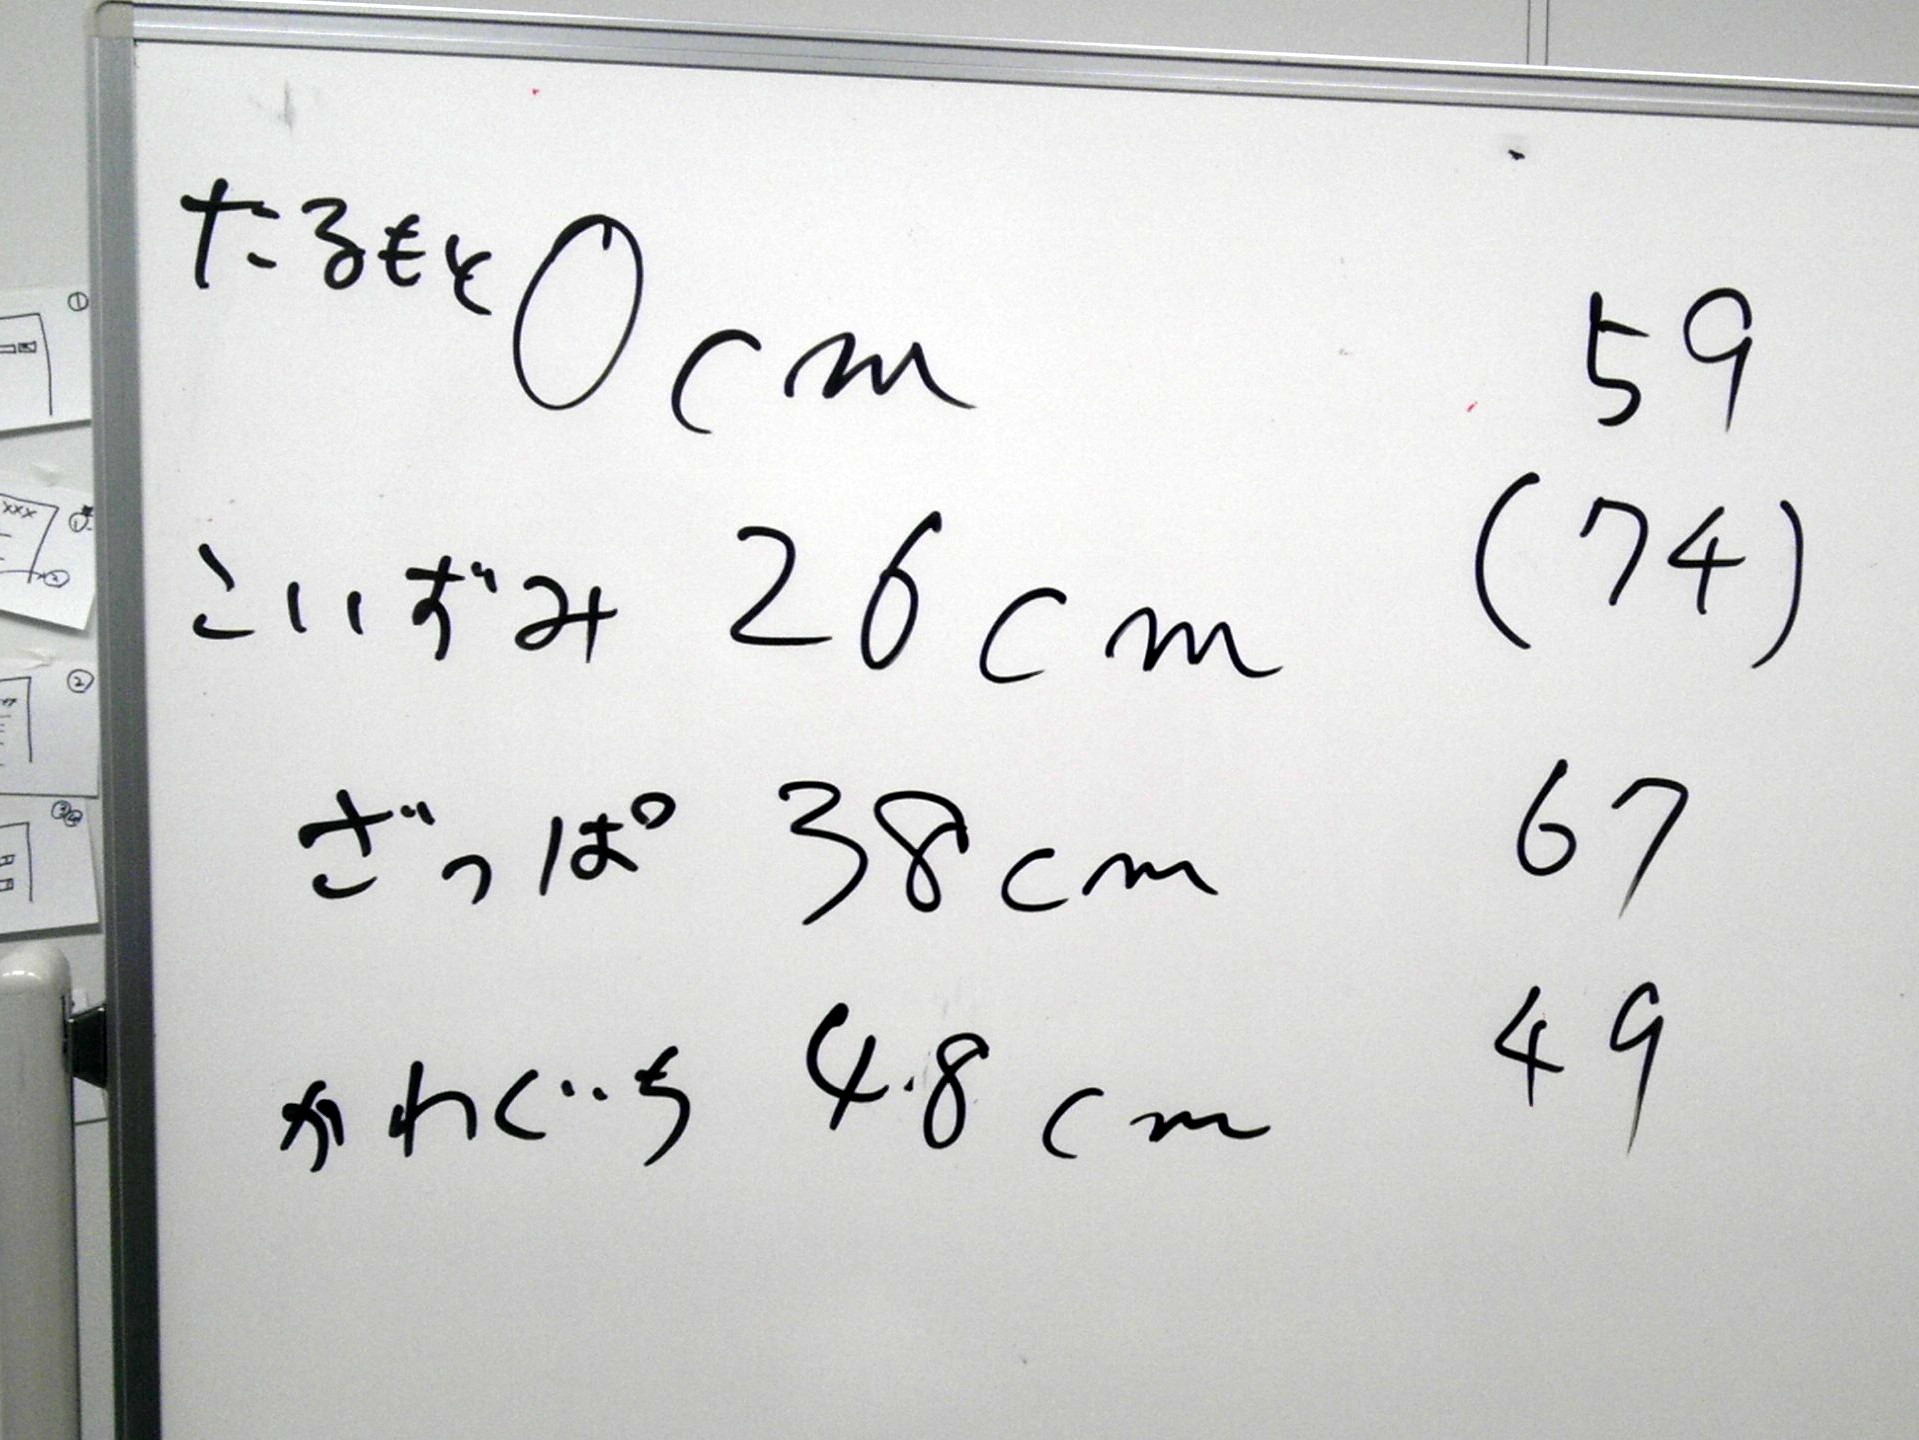 たるもと 0cm 59
こいずみ 26cm (74)
ざっぱ 38cm 67
かわぐち 4.8cm 49
①
xxx ①
②